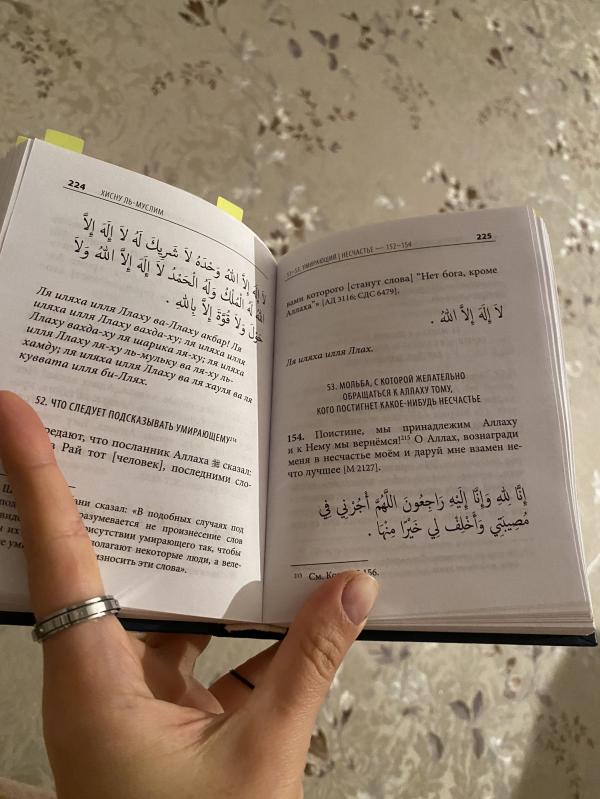 224
ХИСНУ ЛЬ-МУСЛИМ
لَا إِلَهَ إِلَّا اللهُ وَحْدَهُ لَا شَرِيكَ لَهُ لَا إِلَهَ إِلَّا
اللهُ لَهُ الْمُلْكُ وَلَهُ الْحَمْدُ لَا إِلَهَ إِلَّا اللهُ وَلَا
حَوْلَ وَلَا قُوَّةَ إِلَّا بِاللهِ .
Ля иляха илля Ллаху ва-Ллаху акбар! Ля
иляха илля Ллаху вахда-ху; ля иляха илля
Ллаху вахда-ху ля шарика ля-ху; ля иляха
илля Ллаху ля-ху ль-мульку ва ля-ху ль-
хамду; ля иляха илля Ллаху ва ля хауля ва ля
куввата илля би-Ллях.
52. ЧТО СЛЕДУЕТ ПОДСКАЗЫВАТЬ УМИРАЮЩЕМУ
редают, что посланник Аллаха ﷺ сказал:
в Рай тот [человек], последними сло-
сказал: «В подобных случаях под
разумевается не произнесение слов
присутствии умирающего так, чтобы
полагают некоторые люди, а веле-
износить эти слова».
51–53. УМИРАЮЩИЙ | НЕСЧАСТЬЕ — 152–154
225
вами которого [станут слова] "Нет бога, кроме
Аллаха"» [АД 3116; СДС 6479].
لَا إِلَهَ إِلَّا اللهُ .
Ля иляха илля Ллах.
53. МОЛЬБА, С КОТОРОЙ ЖЕЛАТЕЛЬНО
ОБРАЩАТЬСЯ К АЛЛАХУ ТОМУ,
КОГО ПОСТИГНЕТ КАКОЕ-НИБУДЬ НЕСЧАСТЬЕ
154. Поистине, мы принадлежим Аллаху
и к Нему мы вернёмся!215 О Аллах, вознагради
меня в несчастье моём и даруй мне взамен не-
что лучшее [М 2127].
إِنَّا لِلهِ وَإِنَّا إِلَيْهِ رَاجِعُونَ اللَّهُمَّ أْجُرْنِي فِي
مُصِيبَتِي وَأَخْلِفْ لِي خَيْرًا مِنْهَا .
215 См. 156.